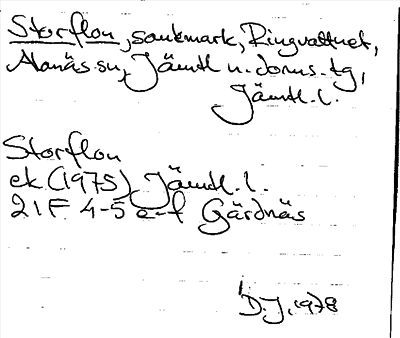 Storflon, sankmark, Ringvattnet,
Alanäs sn, Jämtl n. doms. tg,
Jämtl. l.
Storflon
ek. (1975) Jämtl. l.
21F 4-5 e-f Gärdnäs
D.J. 1978